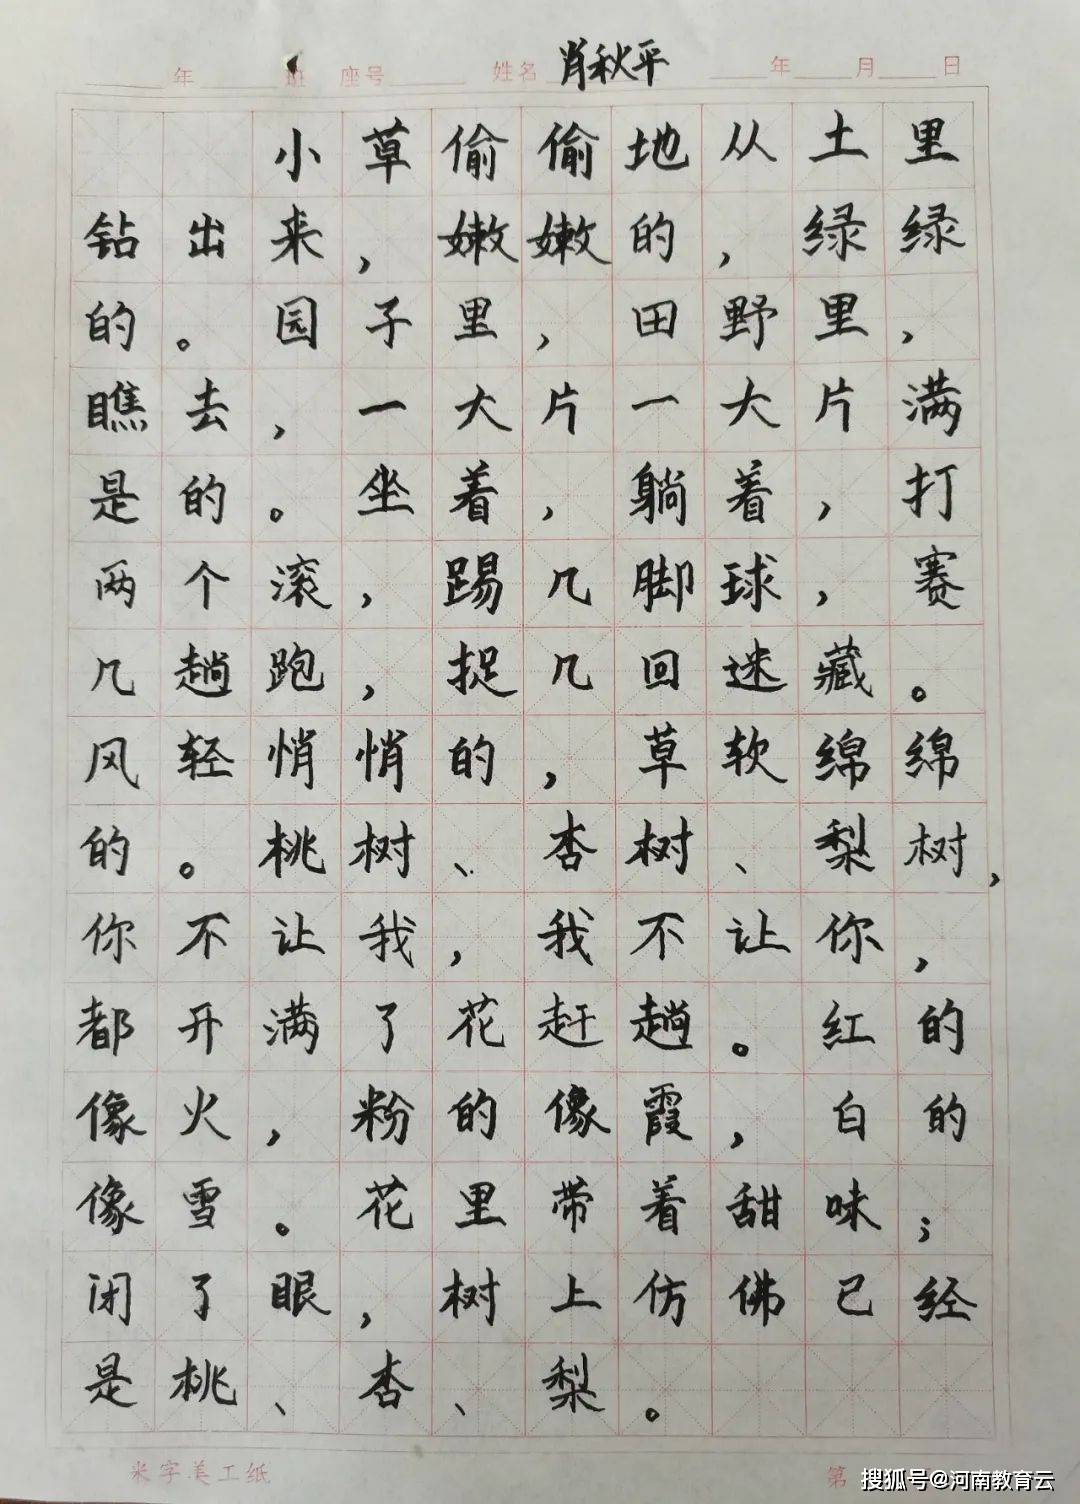 年 班 座号 姓名 肖秋平 年 月 日
小草偷偷地从土里
钻出来，嫩嫩的，绿绿
的。园子里，田野里，
瞧去，一大片一大片满
是的。坐着，躺着，打
两个滚，踢几脚球，赛
几趟跑，捉几回迷藏。
风轻悄悄的，草软绵绵
的。桃树、杏树、梨树，
你不让我，我不让你，
都开满了花赶趟。红的
像火，粉的像霞，白的
像雪。花里带着甜味；
闭了眼，树上仿佛已经
是桃、杏、梨。
米字美工纸 第
搜狐号@河南教育云